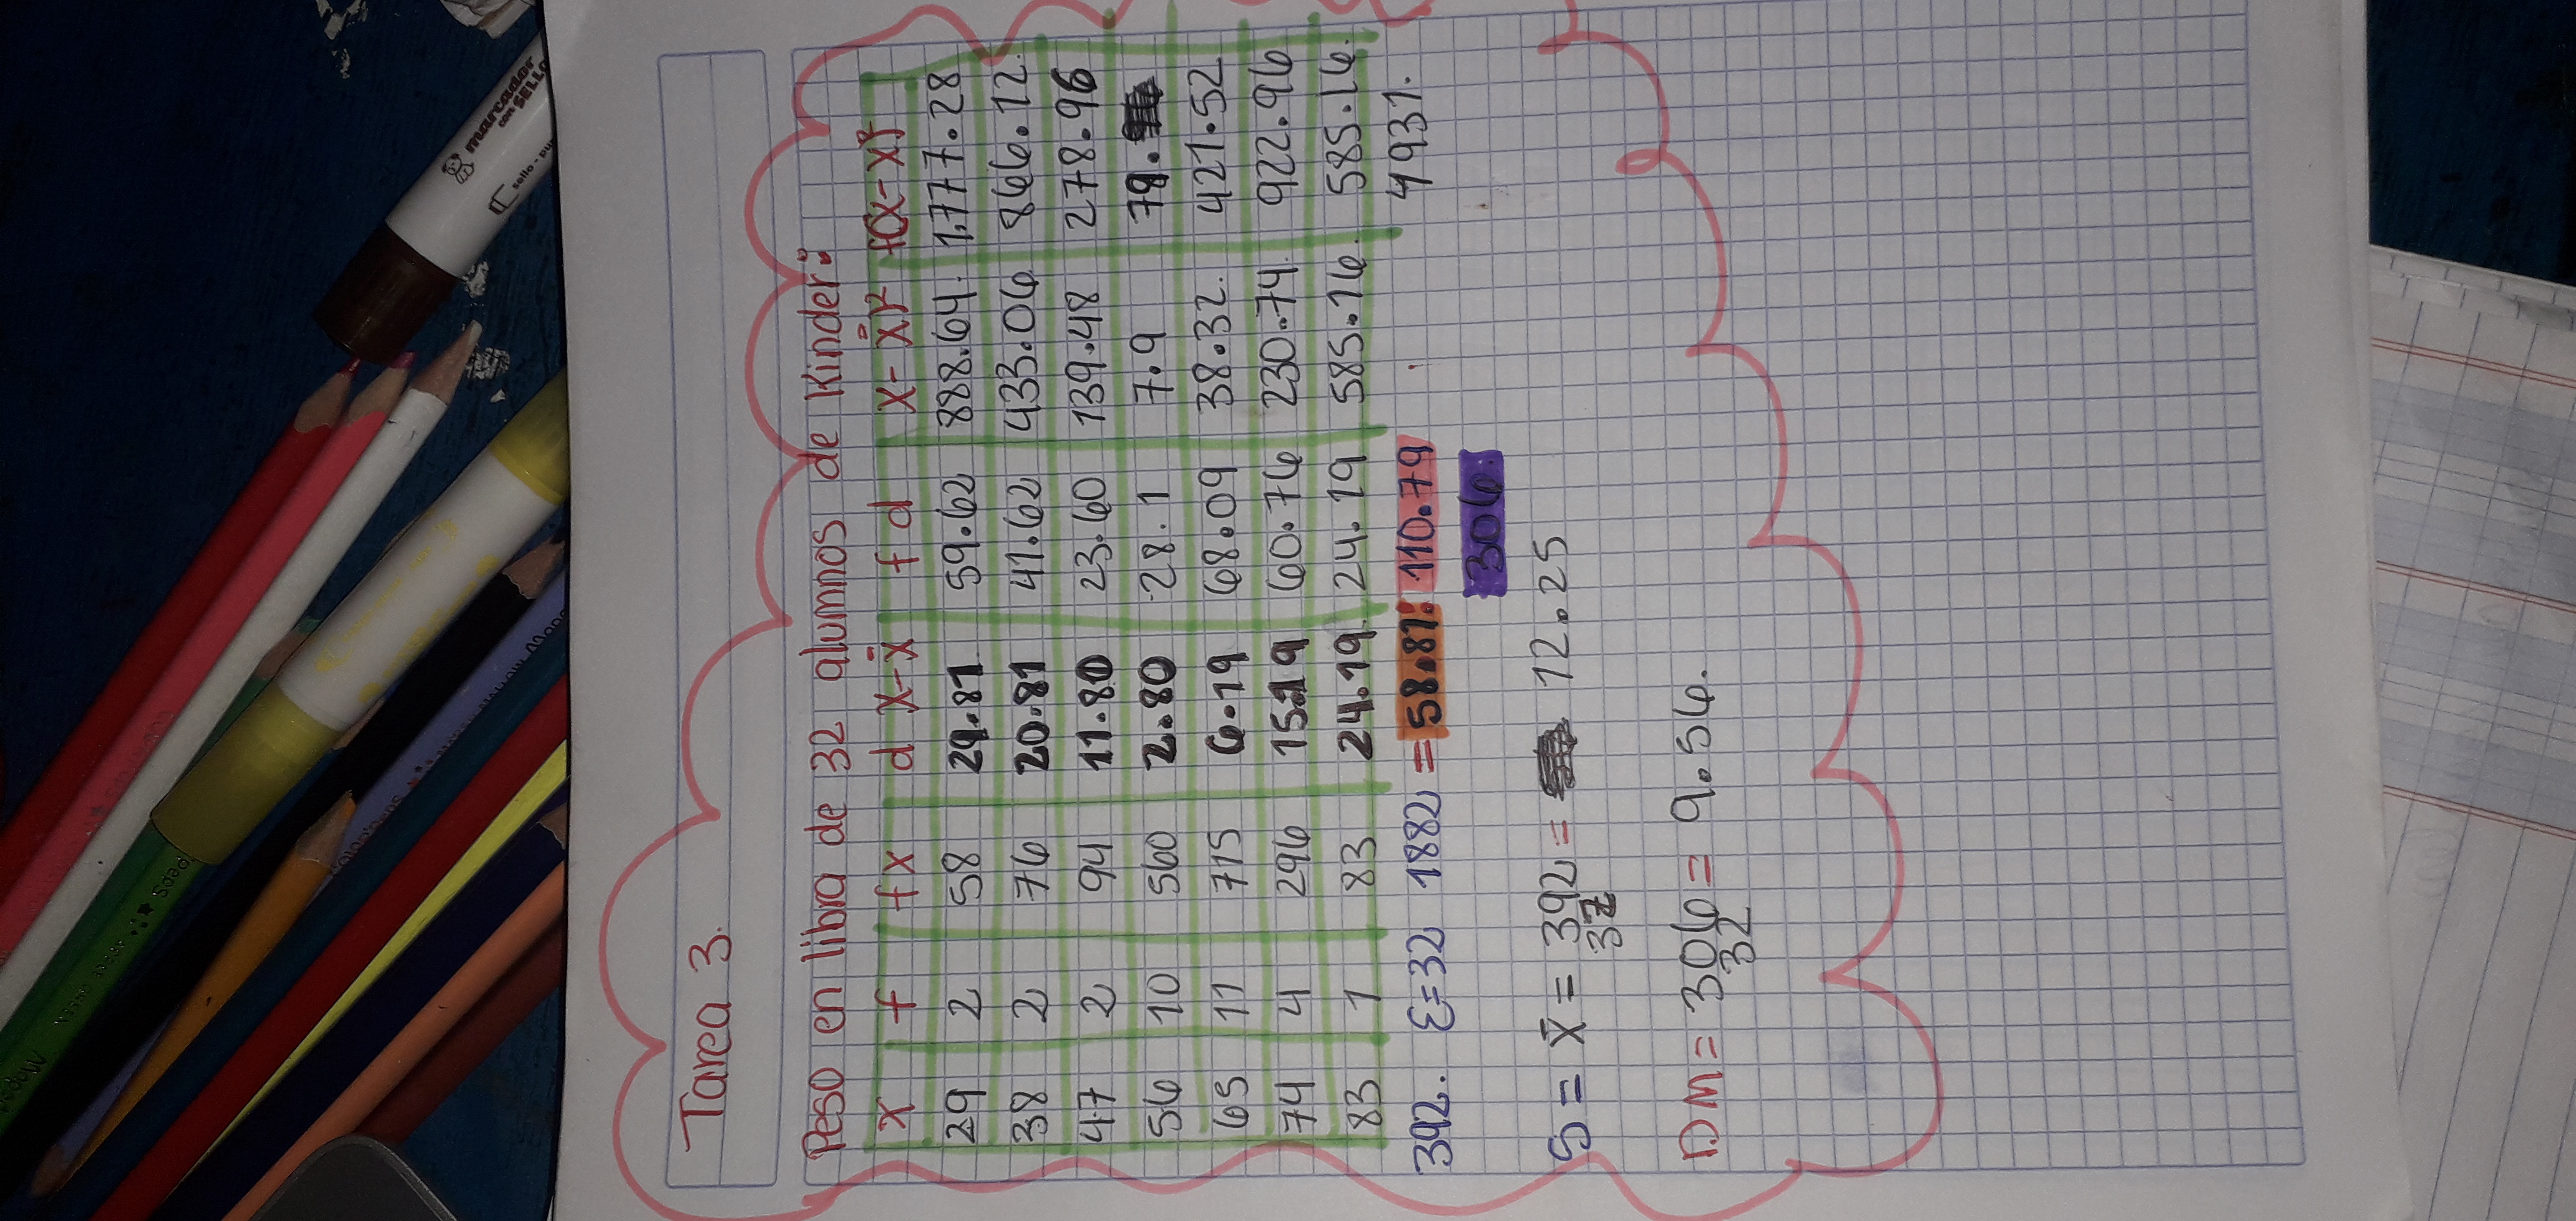 Tarea 3.
Peso en libra de 32 alumnos de Kinder:
x f fx d x-x̄ f d x-x̄)² f(x-x)²
29 2 58 29.81 59.62 888.64. 1,777.28
38 2 76 20.81 41.62 433.06 866.12.
47 2 94 11.80 23.60 139.48 278.96
56 10 560 2.80 28.1 7.9 79.
65 11 715 6.19 68.09 38.32. 421.52
74 4 296 15.19 60.76 230.74. 922.96
83 1 83 24.19. 24.19 585.16. 585.16.
392. Ɛ=32 1882 = 58.81: 110.79 4931.
306.
S = x̄ = 392 = 12.25
32
DM = 306 = 9.56.
32
marcador
con SELLO
sello - su